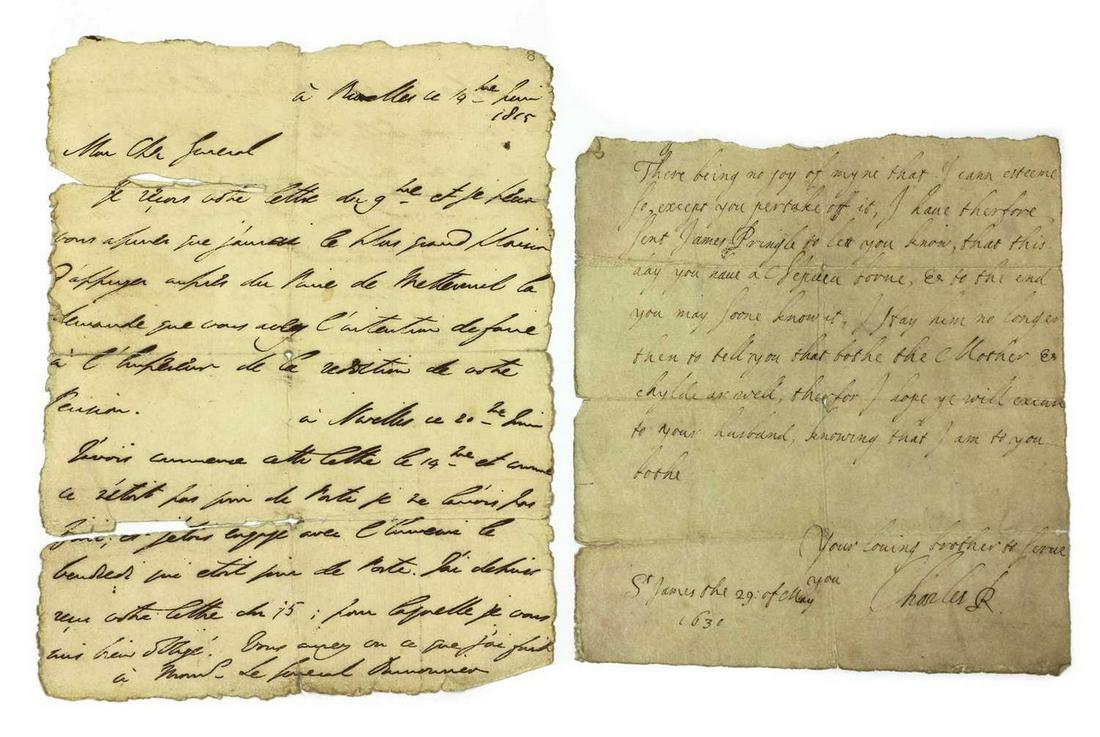 8
à Bruxelles ce 14me Juin
1815
Mon Cher General
Je reçois votre lettre du 9me et je peux
vous assurer que j'aurais le plus grand plaisir
d'appuyer auprès du Prince de Metternich la
demande que vous avez l'intention de faire
à l'Empereur de la reddition de votre
Pension.
à Nivelles ce 20me Juin
J'avois commencé cette lettre le 14me et comme
ce n'étoit pas jour de Poste je ne l'avois pas
finie; et j'etois engagé avec l'Ennemi le
Vendredi qui etoit jour de Poste. J'ai depuis
reçu votre lettre du 15; pour laquelle je vous
suis bien obligé. Vous aurez vu ce que j'ai fait
à Monsr Le General Dumouriez
There being no joy of myne that I cann esteeme
so, except you pertake off it, I have therfore
sent James Pringle to lett you know, that this
day you have a Nepueu borne, & to the end
you may soone know it, I stay him no longer
then to tell you that bothe the Mother &
chylde ar well, therfor I hope ye will excuse
to your husband, knowing that I am to you
bothe
Your loving brother to serve
you
Charles R
St James the 29: of May
1630